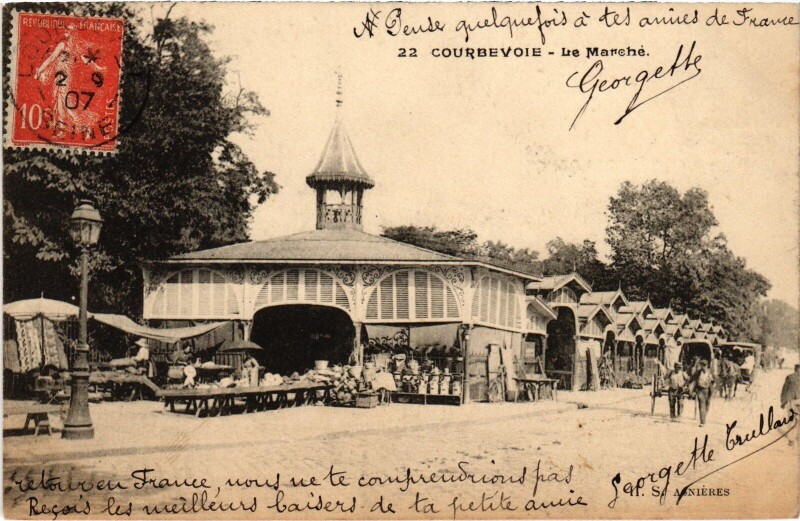 A Penser quelquefois à tes amies de France
22 COURBEVOIE - Le Marché.
Georgette
REPUBLIQUE FRANÇAISE
2 9
07
10
POSTES
SEINE
Georgette Trullard
retour en France, nous ne te comprendrions pas
Reçois les meilleurs baisers de ta petite amie
S. ASNIÈRES